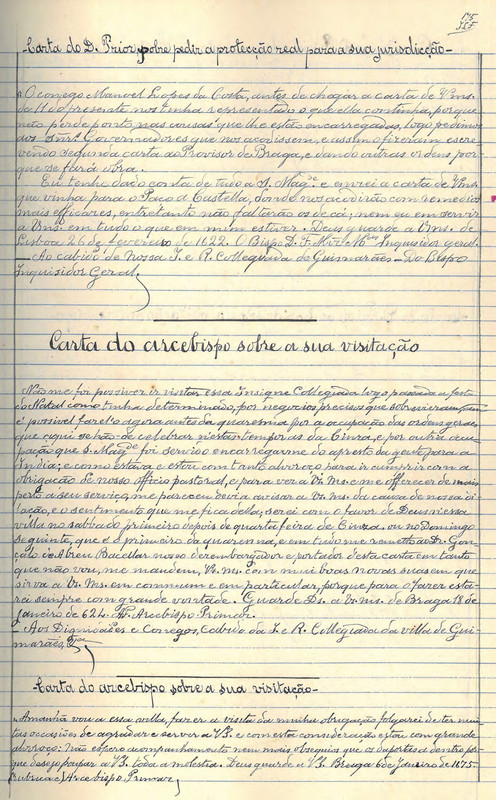 175
Carta do D. Prior, sobre pedir a protecção real para a sua jurisdicção
O conego Manoel Lopes da Costa, antes de chegar a carta de V.mces
de 11 do presente nos tinha representado o que ella continha, porque
não perde ponto nas cousas que lhe estão encarregadas, logo pedimos
aos Snr.s Governadores que nos acodissem, e assim o fizeram escre
vendo segunda carta ao Provisor de Braga, e dando outras ordens por
que se fará obra.
Eu tenho dado conta de tudo a S. Mag.de e enviei a carta de V.mces
que vinha para o Paço a Castella, donde nos acodirão com remedios
mais efficazes, entretanto não faltarão os de cá, nem eu em servir
a V.mces em tudo o que em mim estiver. Deus guarde a V.mces de
Lisboa 26 de Fevereiro de 1622. O Bispo D. Inquisidor geral.
Ao cabido de Nossa S. e R. Collegiada de Guimarães – Do Bispo
Inquisidor Geral.
Carta do arcebispo sobre a sua visitação
Não me foi possivel ir visitar essa Insigne Collegiada logo passada a festa
do Natal como tinha determinado, por negocios precisos que sobrevieram, nem
é possivel fazel-o agora antes da quaresma por a occupação das ordens geraes
que aqui se hão-de celebrar n'estas temporas da Cinza, e por outra occu
pação que S. Mag.de foi servido encarregarme do apresto da gente para a
India; e como estava e estou com tanto alvoroço para ir cumprir com a
obrigação de nosso officio pastoral, e para ver a V. Ms. e me offerecer de mais
perto a seu serviço, me pareceu devia avisar a V. Ms. da causa de nossa di
lação, e o sentimento que me fica della; serei com o favor de Deus n'essa
villa no sabbado primeiro depois de quarta feira de Cinza, ou no Domingo
seguinte, que é o primeiro da quaresma, e em tudo me remetto ao Dr. Gon
çalo de Abreu Bacellar nosso dezembargador e portador desta carta em tanto
que não vou, me mandem, V. Ms. com mui boas novas suas em que
sirva a V. Ms. em commum e em particular, porque para o fazer esta
rei sempre com grande vontade. Guarde D.s a V. Ms. de Braga 18 de
janeiro de 624. Arcebispo Primaz.
Aos Dignidades e Conegos, Cabido da I. e R. Collegiada da villa de Gui
marães,
Carta do arcebispo sobre a sua visitação
Amanhã vou a essa villa, fazer a visita da minha obrigação folgarei de ter mui
tas occasiões de agradar e servir a V.S. e com esta consideração estou com grande
alvoroço: não espero acompanhamento nem mais obsequios que os da porta a dentro por
que desejo poupar a V.S. toda a molestia. Deus guarde a V.S. Braga 6 de Janeiro de 1675
(rubrica) Arcebispo Primaz